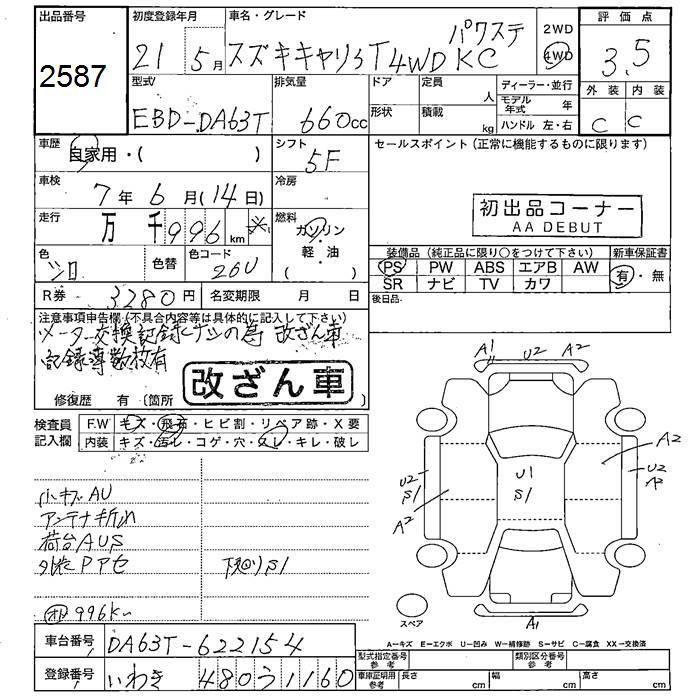 出品番号
2587
初度登録年月
21 5月
車名・グレード
スズキキャリヲT4WD KC パワステ
2WD
4WD
評価点
3.5
外装 内装
C C
型式
EBD-DA63T
排気量
660cc
ドア
形状
定員 人
積載 kg
ディーラー・並行
モデル年式 年
ハンドル 左・右
車歴
自家用・( )
シフト
5F
セールスポイント(正常に機能するものに限ります)
車検
7年 6月(14日)
冷房
初出品コーナー
AA DEBUT
走行
万 千996km ※
燃料
ガソリン
軽・油
( )
色
シロ
色替
色コード
26U
装備品(純正品に限り○をつけて下さい)
PS PW ABS エアB AW
SR ナビ TV カワ
新車保証書
有・無
後日品
R券 3280円
名変期限 月 日
注意事項申告欄(不具合内容等は具体的に記入して下さい)
メーター交換記録ナシの為 改ざん車
記録簿数枚有
改ざん車
修復歴 有(箇所 )
検査員
記入欄
F.W キズ・飛石・ヒビ割・リペア跡・X要
内装 キズ・汚レ・コゲ・穴・スレ・キレ・破レ
小キズAU
アンテナ折れ
荷台AUS
外装Pアセ
下廻りS1
996K
A1 U2 A2
U2
S1
A2
U1
S1
A2
U2
A2
A1
スペア
A―キズ E―エクボ U―凹み W―補修跡 S―サビ C―腐食 XX―交換済
車台番号 DA63T-622154
登録番号 いわき 480う1160
型式指定番号
参考
類別区分番号
参考
車庫証明用
参考
長さ cm
幅 cm
高さ cm